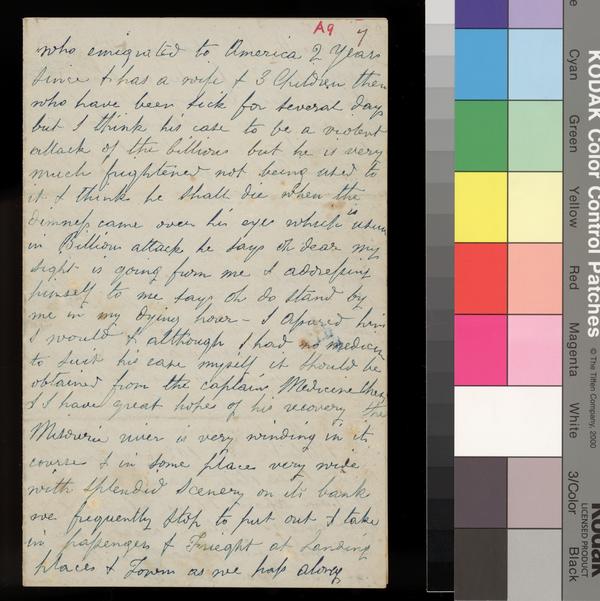 A9 7
who emigrated to America 2 Years
since & has a wife & 3 Children then
who have been sick for several days
but I think his case to be a violent
attack of the billious but he is very
much frightened not being used to
it & thinks he shall die when the
dimness came over his eyes which is usual
in Billious attack he says oh dear my
sight is going from me & addressing
himself to me says oh do stand by
me in my dying hour - I asured him
I would & although I had no medicin
to suit his case myself it should be
obtained from the captains Medicine Chest
& I have great hopes of his recovery the
Misourie river is very winding in its
course & in some places very wide
with splendid Scenery on its bank
we frequently stop to put out & take
in passengers & Frieght at Landing
places & Towns as we pass along
KODAK Color Control Patches
© The Tiffen Company, 2000
Kodak
LICENSED PRODUCT
Cyan
Green
Yellow
Red
Magenta
White
3/Color
Black